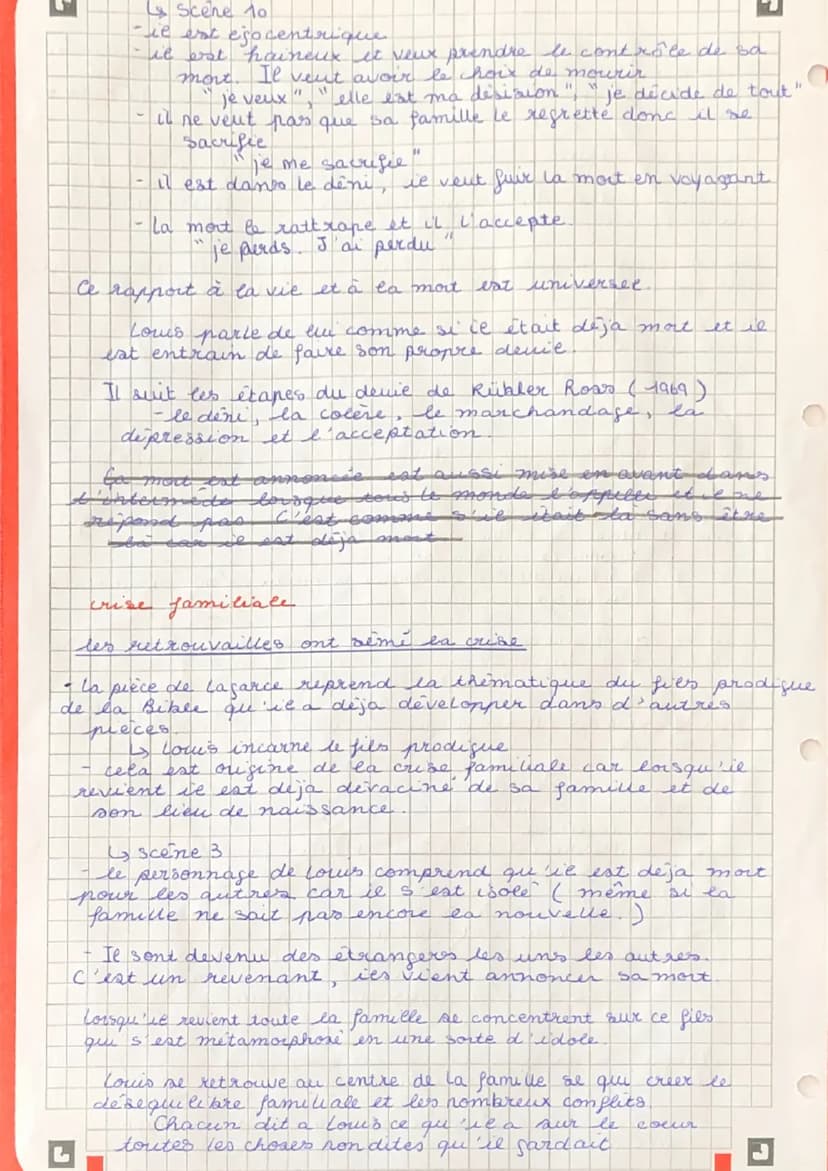 ↳ Scène 10
- il est égocentrique
- il est haineux et veux prendre le contrôle de sa
mort. Il veut avoir le choix de mourir
"je veux", "elle est ma désision", "je décide de tout"
- il ne veut pas que sa famille le regrette donc il se
sacrifie
"je me sacrifie"
- il est dans le déni, il veut fuir la mort en voyageant
- La mort le rattrape et il l'accepte.
"je perds. J'ai perdu"
Ce rapport à la vie et à la mort est universel.
Louis parle de lui comme si il était déja mort et il
est entrain de faire son propre deuil.
Il suit les étapes du deuil de Kübler Ross (1969)
- le déni, la colère, le marchandage, la
dépression et l'acceptation.
Ça mort est annoncée est aussi mise en avant dans
l'intermède lorsque tous le monde l'appelle et il ne
répond pas. C'est comme s'il était là sans être
là car il est déja mort
crise familiale
les retrouvailles ont semé la crise
- la pièce de Lagarce reprend la thématique du fils prodigue
de la Bible qu'il a déja développer dans d'autres
pièces.
↳ Louis incarne le fils prodigue
- cela est origine de la crise familiale car lorsqu'il
revient il est déja déraciné de sa famille et de
son lieu de naissance.
↳ scène 3
- le personnage de Louis comprend qu'il est déja mort
pour les autres car il s'est isolé (même si la
famille ne sait pas encore la nouvelle.)
- Il sont devenu des étrangers les uns les autres.
C'est un revenant, ils vient annoncer sa mort.
Lorsqu'il revient toute la famille se concentrent sur ce fils
qui s'est métamorphosé en une sorte d'idole.
Louis se retrouve au centre de la famille se qui creer le
déséquilibre familiale et les nombreux conflits.
Chacun dit a Louis ce qu'il a sur le coeur
toutes les choses non dites qu'il gardait